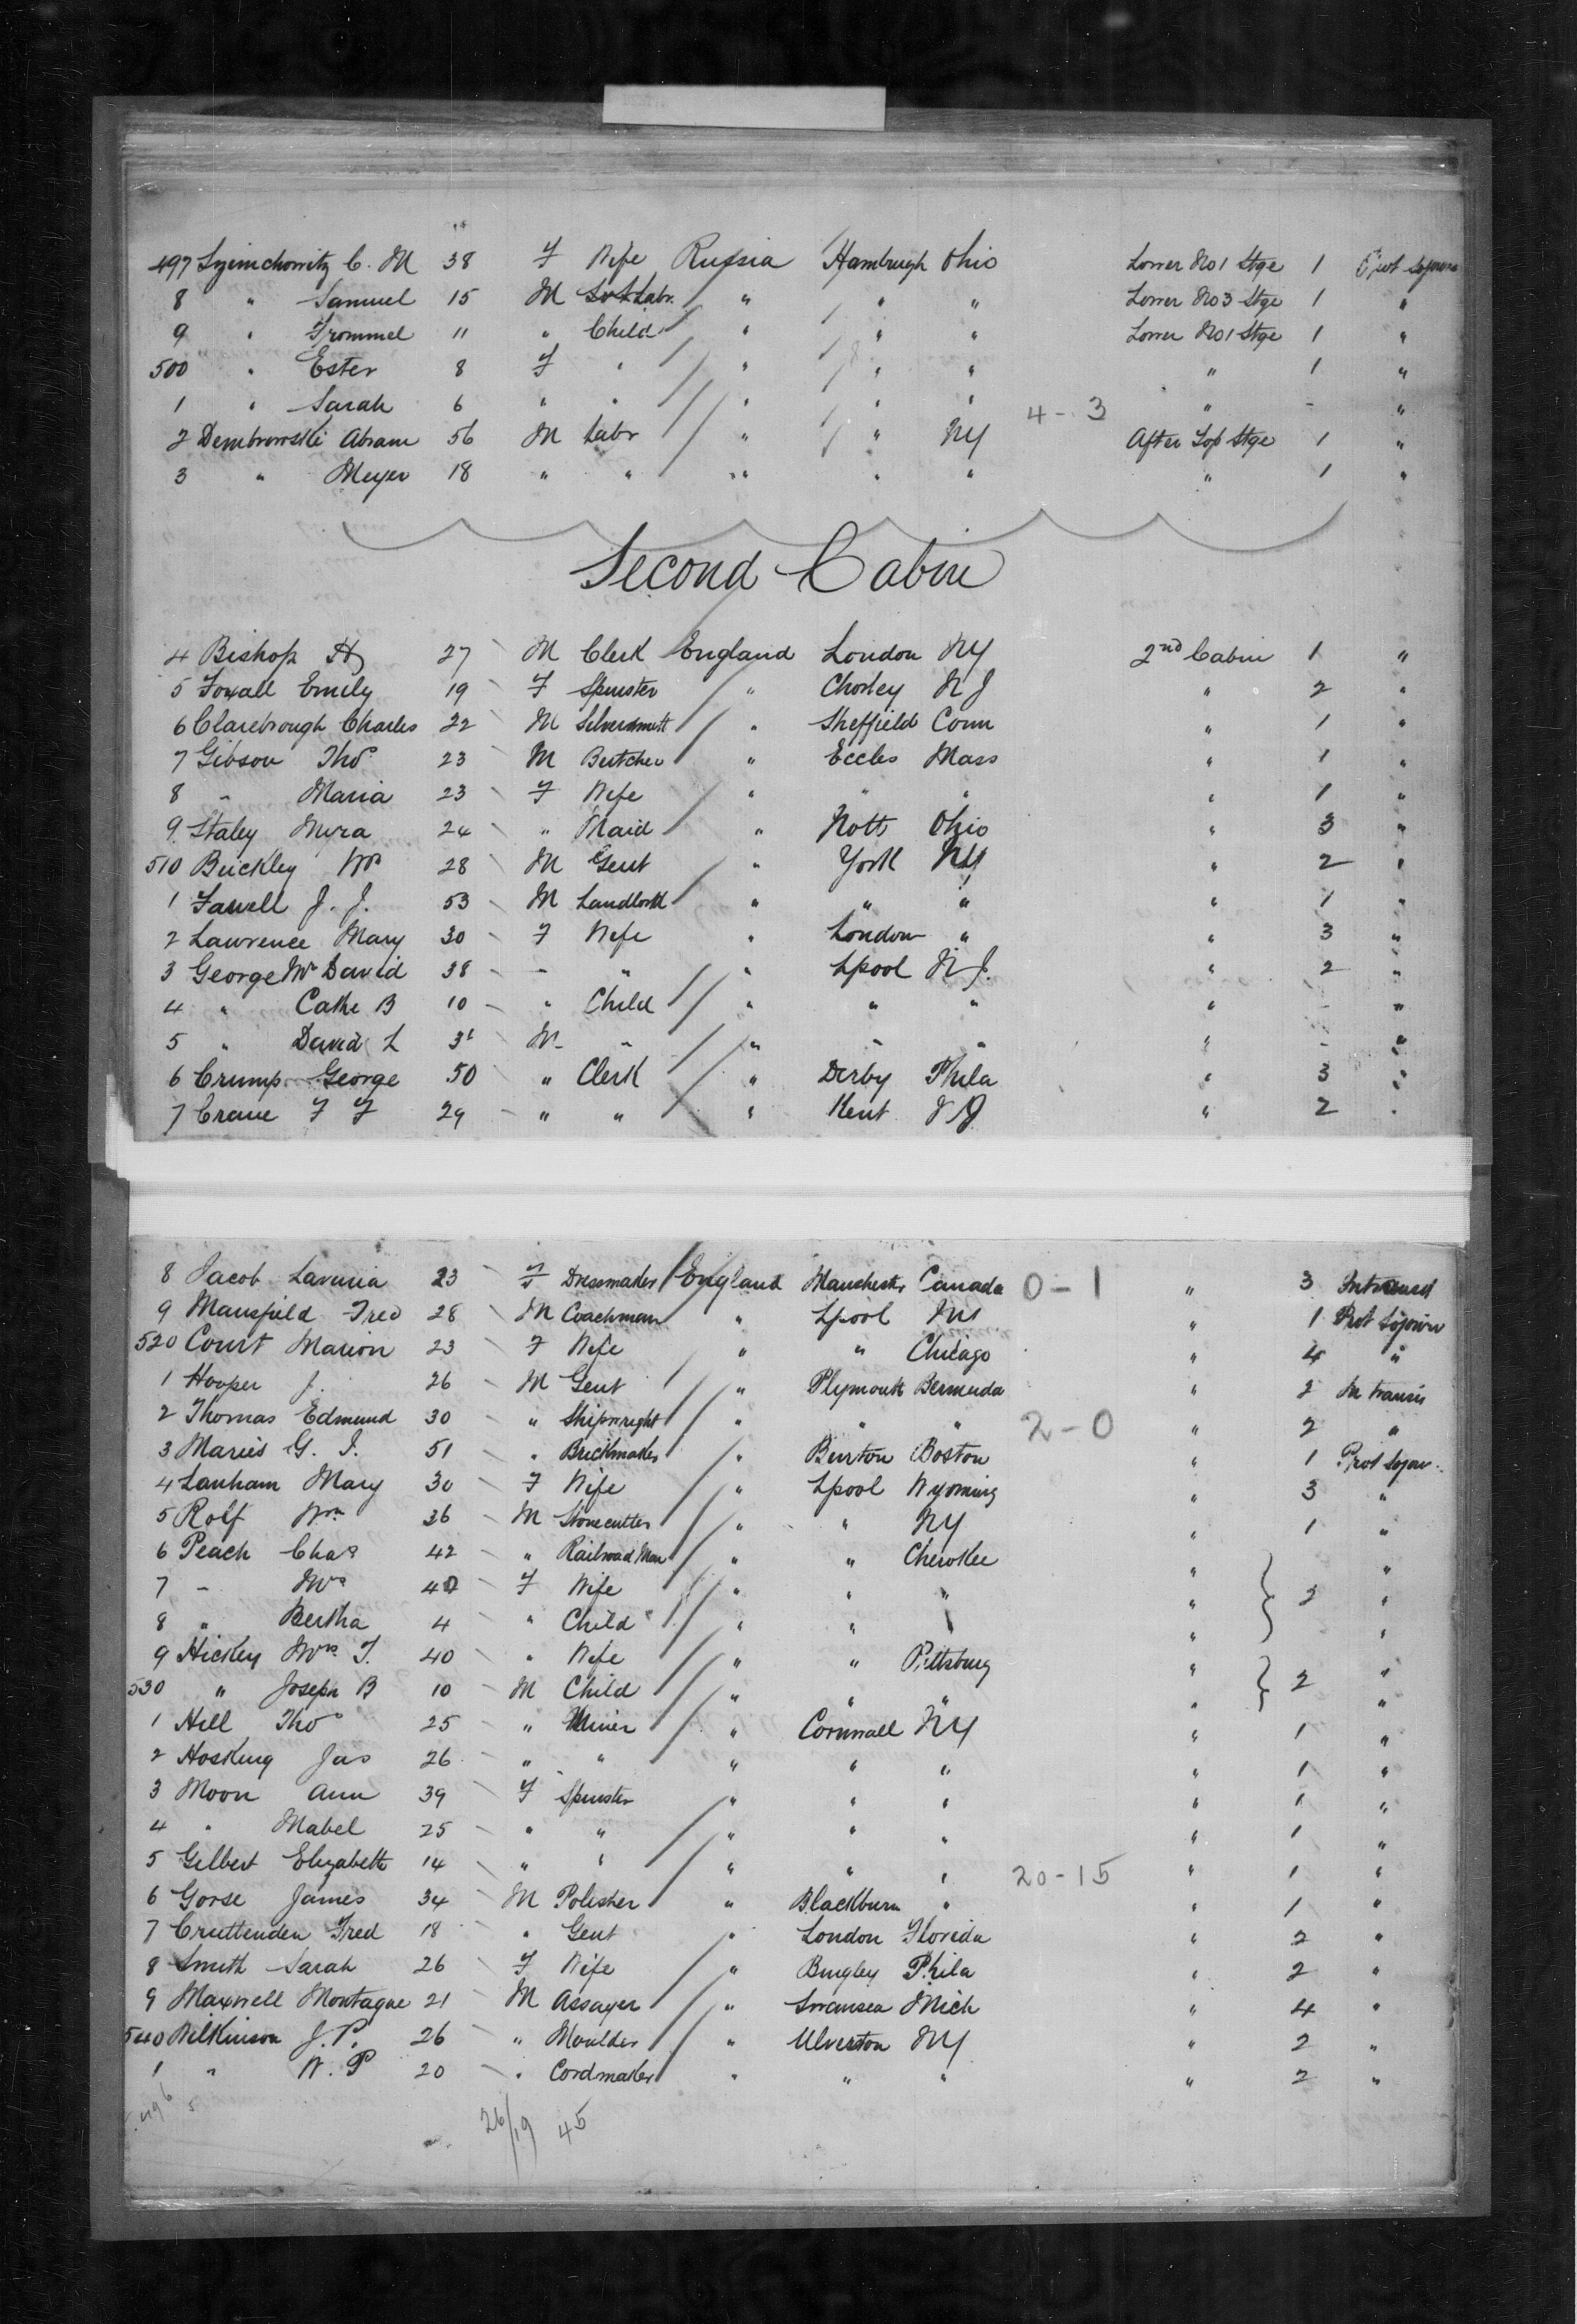 497 Szeinchowitz C. M 38 F Wife Russia Hambrugh Ohio Lower No 1 Stge 1 Prot Sojourn
8 " Samuel 15 M Labr. " " " Lower No 3 Stge 1 "
9 " Frommel 11 " Child " " " Lower No 1 Stge 1 "
500 " Ester 8 F " " " " " 1 "
1 " Sarah 6 " " " " " 4-3 " - "
2 Dembrowski Abram 56 M Labr " " NY After Top Stge 1 "
3 " Meyer 18 " " " " " " 1 "
Second Cabin
4 Bishop Hy 27 M Clerk England London NY 2nd Cabin 1 "
5 Foxall Emily 19 F Spinster " Chorley N J " 2 "
6 Clarebrough Charles 22 M Silversmith " Sheffield Conn " 1 "
7 Gibson Thos 23 M Butcher " Eccles Mass " 1 "
8 " Maria 23 F Wife " " " " 1 "
9 Staley Myra 24 " Maid " Nott Ohio " 3 "
510 Buckley Wm 28 M Gent " York NY " 2 "
1 Fawell J. J. 53 M Landlord " " " " 1 "
2 Lawrence Mary 30 F Wife " London " " 3 "
3 George Mrs David 38 - " " Lpool N J. " 2 "
4 " Cathe B 10 " Child " " " " - "
5 " David L 3 M - " " " " " - "
6 Crump George 50 " Clerk " Derby Phila " 3 "
7 Crane F F 29 " " " Kent N J " 2 "
8 Jacob Lavinia 23 F Dressmaker England Manchester Canada 0-1 " 3 Intransit
9 Mansfield Fred 28 M Coachman " Lpool NY " 1 Prot Sojourn
520 Court Marion 23 F Wife " " Chicago " 4 "
1 Hooper J. 26 M Gent " Plymouth Bermuda " 2 In transit
2 Thomas Edmund 30 " Shipwright " " " 2-0 " 2 "
3 Maries G. J. 51 " Brickmaker " Burton Boston " 1 Prot Sojour
4 Lanham Mary 30 F Wife " Lpool Wyoming " 3 "
5 Rolf Wm 36 M Stonecutter " " NY " 1 "
6 Peach Chas 42 " Railroad Man " " Cherokee " "
7 - Mrs 40 F Wife " " " " 2 "
8 " Bertha 4 " Child " " " "
9 Hickey Mrs T. 40 " Wife " " Pittsburg " "
530 " Joseph B 10 M Child " " " " 2 "
1 Hill Thos 25 " Miner " Cornwall NY " 1 "
2 Hosking Jas 26 " " " " " " 1 "
3 Moon Ann 39 F Spinster " " " " 1 "
4 " Mabel 25 " " " " " " 1 "
5 Gilbert Elizabeth 14 " " " " " 20-15 " 1 "
6 Gorse James 34 M Polisher " Blackburn " " 1 "
7 Cruttenden Fred 18 " Gent " London Florida " 2 "
8 Smith Sarah 26 F Wife " Bingley Phila " 2 "
9 Maxwell Montague 21 M Assayer " Swansea Mich " 4 "
540 Wilkinson J. P. 26 " Moulder " Ulverston NY " 2 "
1 " W. P 20 " Cordmaker " " " " 2 "
496 5 26/19 45